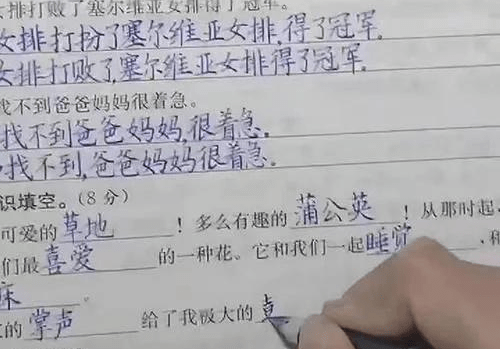 女排打败了塞尔维亚女排得了冠军。
女排打扮了塞尔维亚女排,得了冠军.
女排打败了塞尔维亚女排得了冠军.
找不到爸爸妈妈很着急。
找不到爸爸妈妈,很着急.
找不到,爸爸妈妈很着急.
识填空。(8分)
可爱的 草地 ！多么有趣的 蒲公英 ！从那时起,
们最 喜爱 的一种花。它和我们一起 睡觉 、和
床 。
的 掌声 给了我极大的